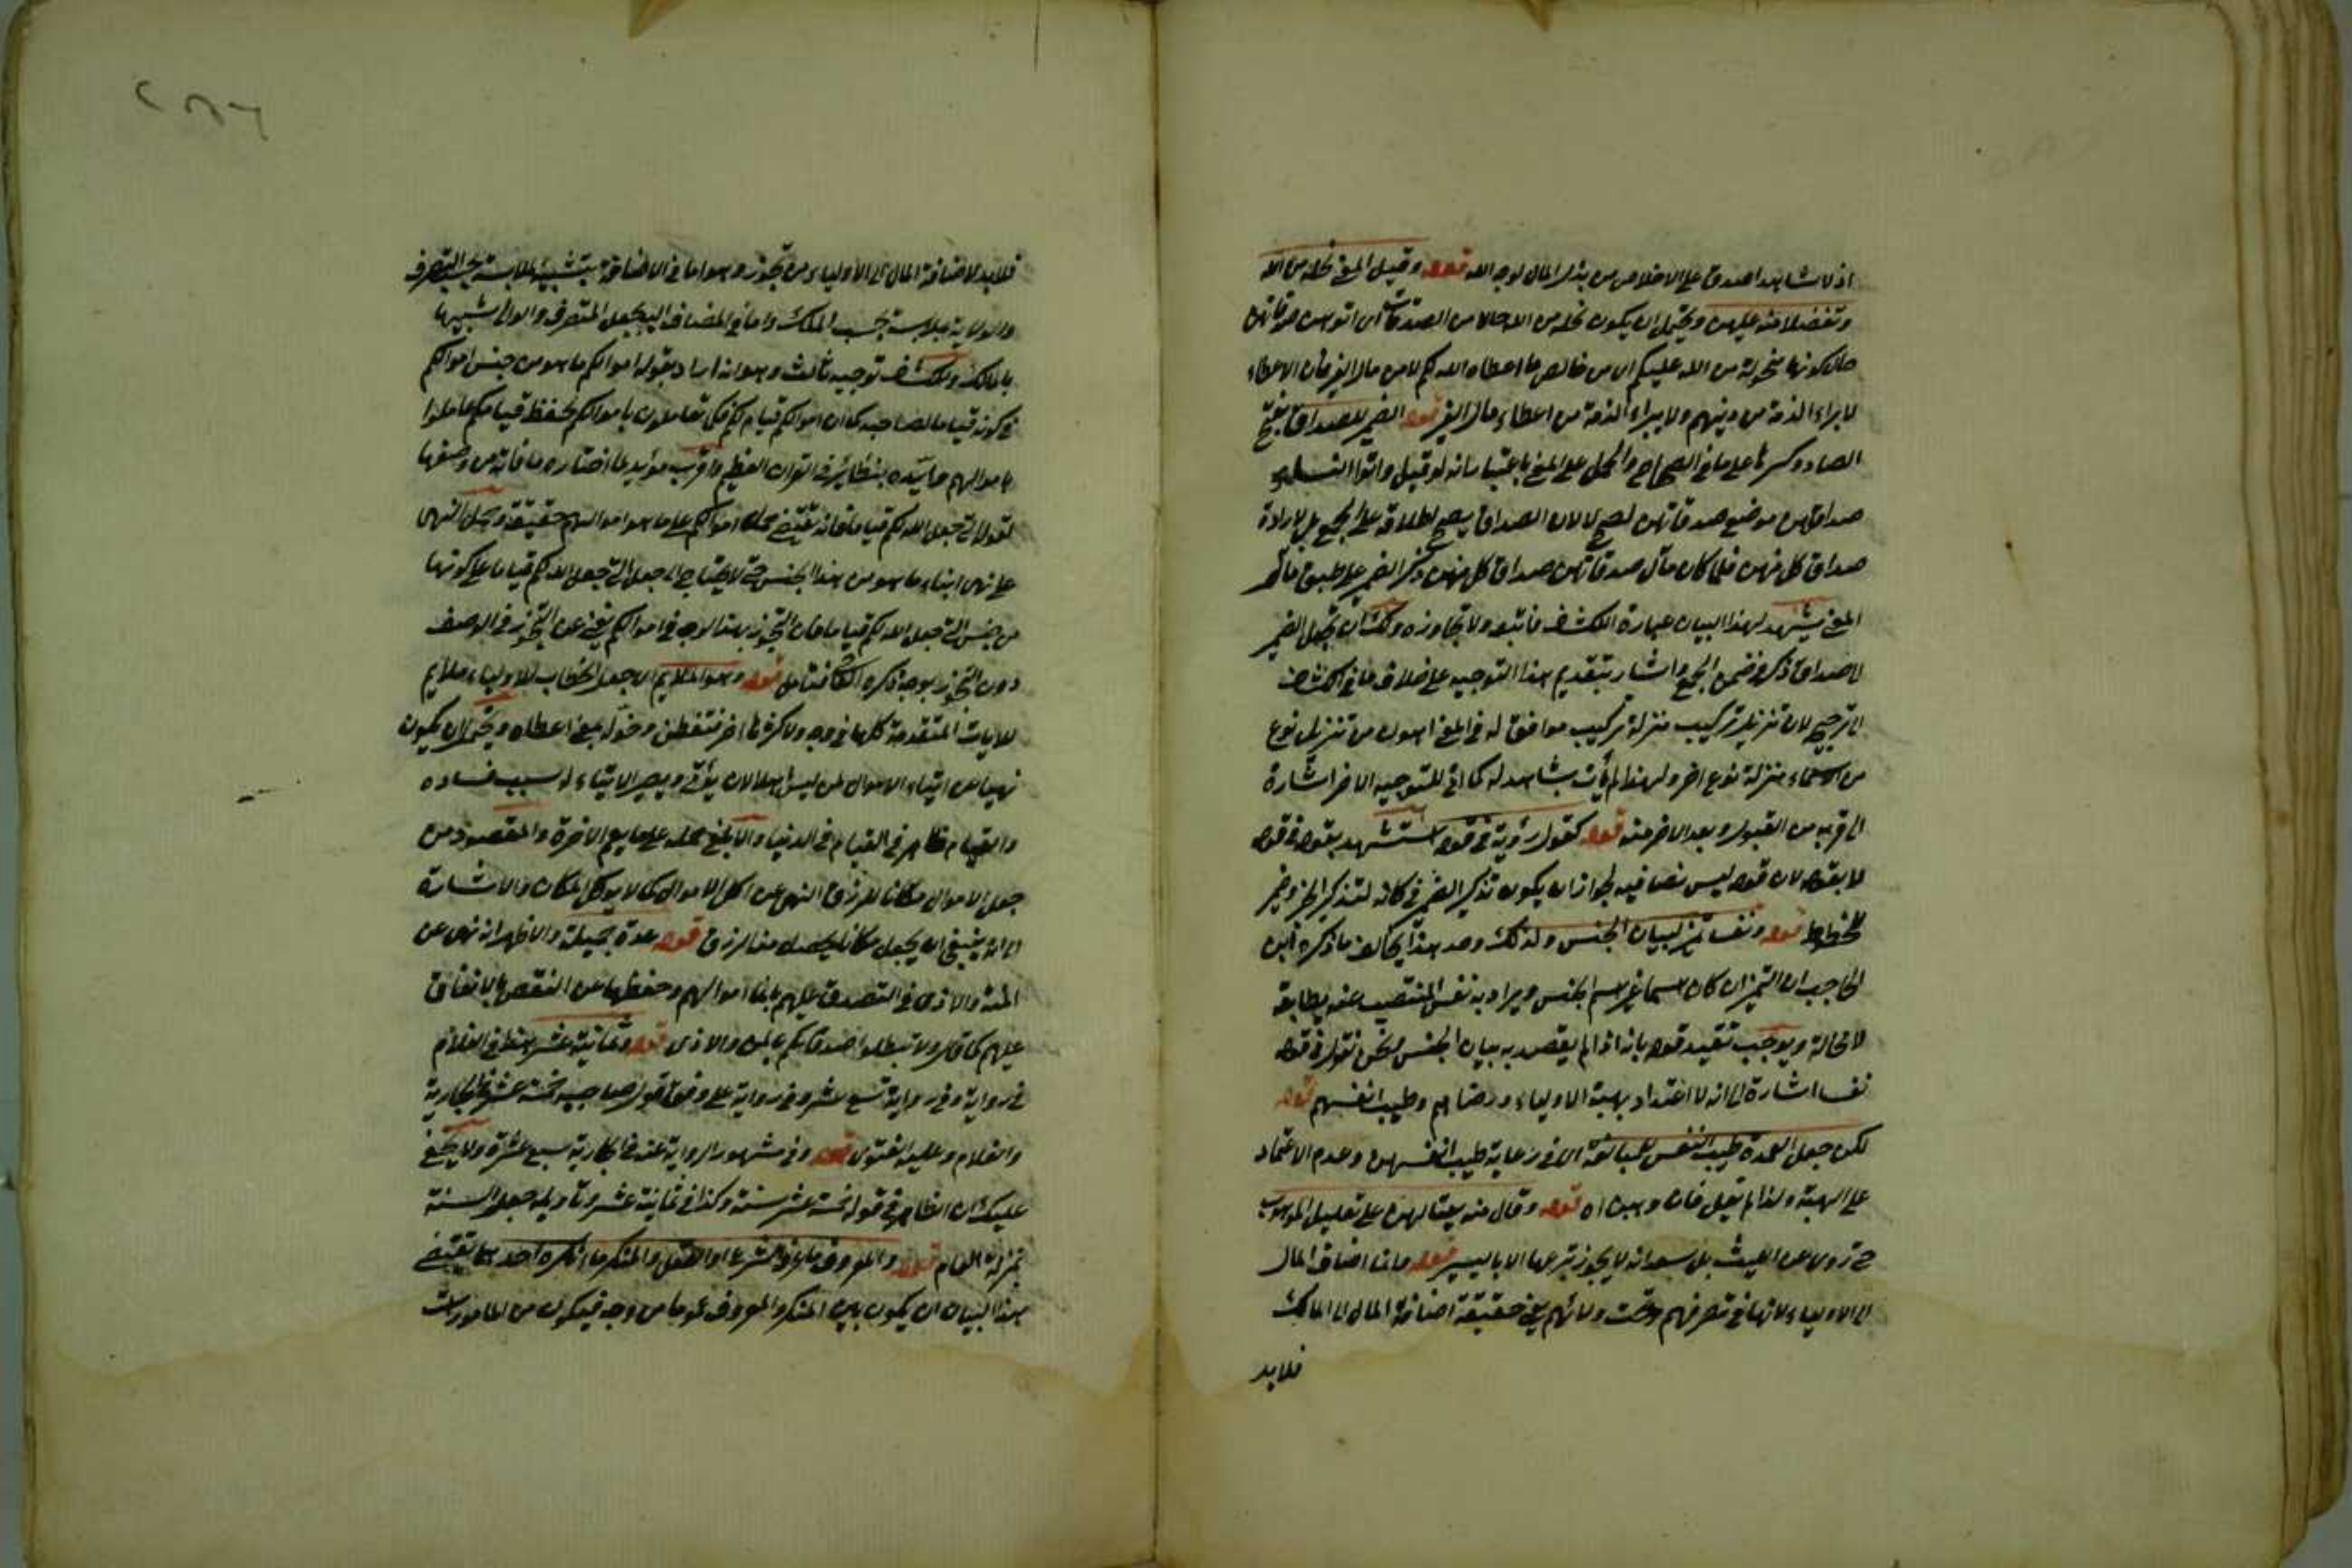 اذ لا شاهد اصدق على الاخلاص من بذل المال لوجه الله قوله وقيل المعنى نحلة من الله
وتفضلا منه عليهن ويحتمل ان يكون نحلة من الله حالا من الصدقات اى اتوهن صدقاتهن
حال كونها منحولة من الله عليكم اى من خالص ما اعطاه الله لكم لا من مال الغير فان الاعطاء
لابراء الذمة من دينهم ولا يبراء الذمة من اعطاء مال الغير قوله الضمير للصداق بفتح
الصاد وكسرها على ما فى الصحاح والحمل على المعنى باعتبار انه لو قيل واتوا النساء
صداقهن موضع صدقاتهن لصح لا لان الصداق يصح اطلاقه على الجمع بل لارادة
صداق كل منهن فلما كان مآل صدقاتهن صداق كل منهن ذكر الضمير على طبق
المعنى يشهد لهذا البيان عبارة الكشف فاتبعه ولا تجاوزه ولك ان تجعل الضمير
لاصداق ذكر فى ضمن الجمع واشار بتقديم هذا التوجيه على خلاف ما فى الكشاف
الى ترجيحه لان تنزيل تركيب منزلة تركيب موافق له فى المعنى اهون من تنزيل نوع
من الاسماء منزلة نوع اخر ولهذا لم يأت بشاهد له كما اتى للتوجيه الاخر اشارة
الى قربه من القبول وبعد الاخر منه قوله كقول رؤبة فى قوله استشهد بقوله فى قوله
لا بقوله لان قوله ليس نصا فيه لجواز ان يكون تذكير الضمير فى كانه لتذكير الخبر
للخطوط قوله ونفسا تمييز لبيان الجنس ولذلك وحد هذا يخالف ما ذكره ابن
الحاجب ان التمييز ان كان اسما غير اسم الجنس ويراد به نفس المنتصب عنه يطابقه
لا محالة ويوجب تقييد قوله بانه اذا لم يقصد به بيان الجنس نقول فى قوله
نفسا اشارة الى انه لا اعتداد بهبة الاولياء ورضاهم وطيب انفسهم قوله
لكن جعل العمدة طيب النفس للمبالغة اى فى رعاية طيب انفسهن وعدم الاعتماد
على الهبة ولذا لم يقل فان وهبن اه قوله وقال منه بعثا لهن على تقليل الموهوب
حتى روى عن الليث بن سعد انه لا يجوز تبرعها الا باليسير قوله وانما اضاف المال
الى الاولياء لانها فى تصرفهم وتحت ولايتهم يعنى حقيقة اضافة المال الى المالك
فلا بد
فلا بد لاضافة المال الى الاولياء من تجوز وهو اما فى الاضافة بتشبيه ملابسة بحسب التصرف
والولاية بملابسة بحسب الملك واما فى المضاف اليه بجعل المتصرف والوالى شبيها
بالمالك وللكشاف توجيه ثالث وهو انه اراد بقوله اموالكم ما هو من جنس اموالكم
فى كونه قياما لصاحبه كما ان اموالكم قيام لكم فكما تعاملون باموالكم لحفظ قيامكم عاملوا
باموالهم وايده بنظائر فى القران العظيم واقرب مؤيد لما اختاره ما فاته من وصفها
بقوله التى جعل الله لكم قياما فانه يقتضى حمل اموالكم على ما هو اموالهم حقيقة وجعل النهى
على نهى ايتاء ما هو من هذا الجنس حتى لا يحتاج الى جعل التى جعل الله لكم قياما على كونها
من جنس التى جعل الله لكم قياما فان التجوز بهذا الوجه فى اموالكم يغنى عن التجوز فى الوصف
دون التجوز بوجه ذكره الكشاف فتامل قوله وهو الملايم اى جعل الخطاب للاولياء ملايم
للايات المتقدمة كلها فى وجه ولاكثرها اخر فتفطن وخول بمعنى اعطاه ويحتمل ان يكون
نهيا عن ايتاء الاموال لمن ليس اهلا لان يؤتى ويصير الايتاء له سبب فساده
والقيام ظاهر فى القيام فى الدنيا والابلغ حمله على ما يعم الاخرة والمقصود من
جعل الاموال مكانا للرزق النهى عن اكل الاموال كما لا يوكل المكان والاشارة
الى انه ينبغى ان يجعل مكانا يحصل منه الرزق قوله عدة جميلة والاظهر انه نهى عن
المنة والاذى فى التصدق عليهم بانماء اموالهم وحفظها عن النقص بالانفاق
عليهم كما قال ولا تبطلوا صدقاتكم بالمن والاذى قوله وثمانية عشر هذا فى الغلام
فى رواية وفى رواية تسع عشر وفى رواية على وفق قول صاحبيه خمسة عشر للجارية
والغلام وعليه الفتوى قوله وفى مشهور الرواية عنه فى الجارية سبع عشرة ولا يخفى
عليك ان الظاهر فى قوله خمسة عشر سنة وكذا فى ثمانية عشر وتاويله جعل السنة
بمنزلة العام قوله والمعروف ما عرفه الشرع او العقل والمنكر ما انكره احدهما يقتضى
هذا البيان ان يكون بين المنكر والمعروف عموما من وجه فيكون من المامورات